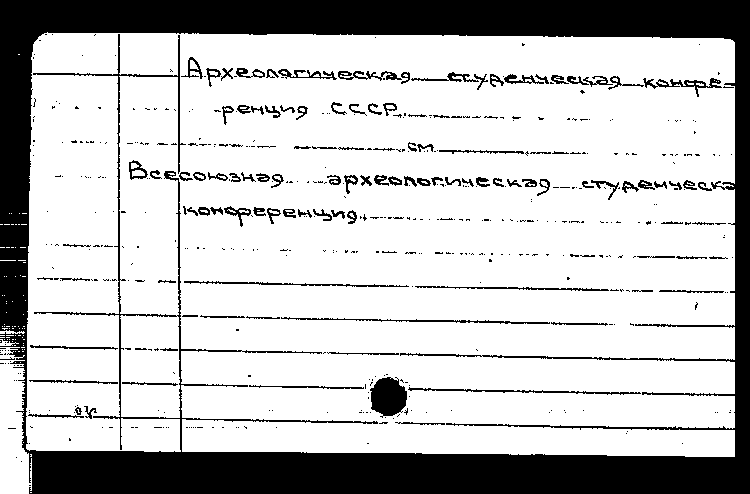 Археологическая студенческая конфе-
ренция СССР.
см
Всесоюзная археологическая студенческа
конференция.